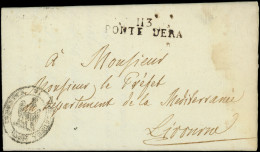 113
PONTE DERA
à Monsieur
Monsieur le Préfet
du Département de la Mediterranée
Livourne